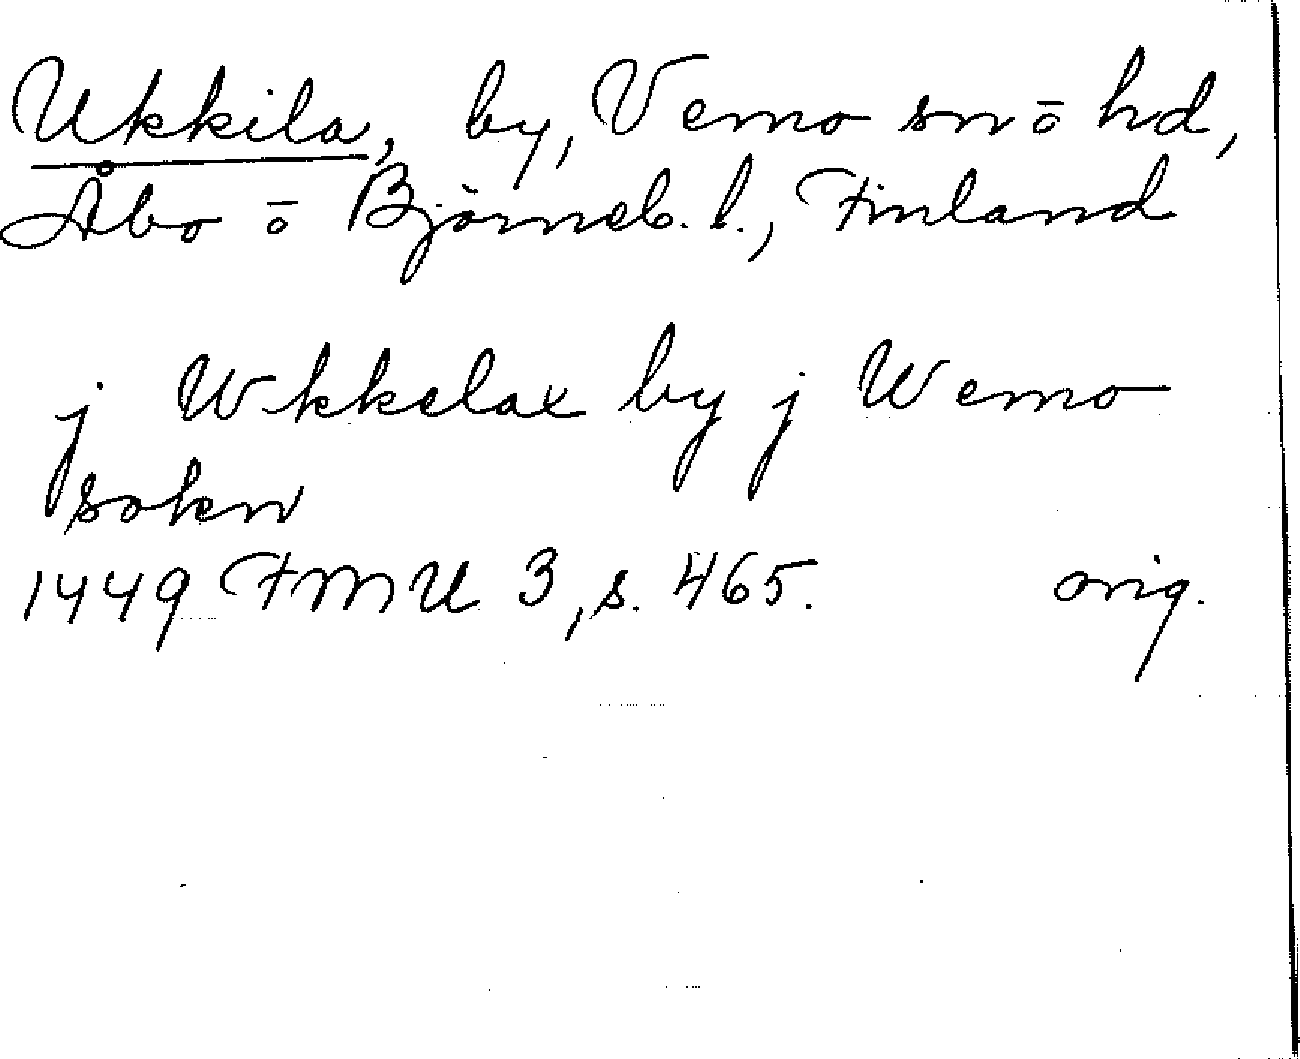 Ukkila, by, Vemo sn ō hd,
Åbo ō Björneb. l., Finland
j Wkkelax by j Wemo
sokn
1449 FMU 3, s. 465. orig.